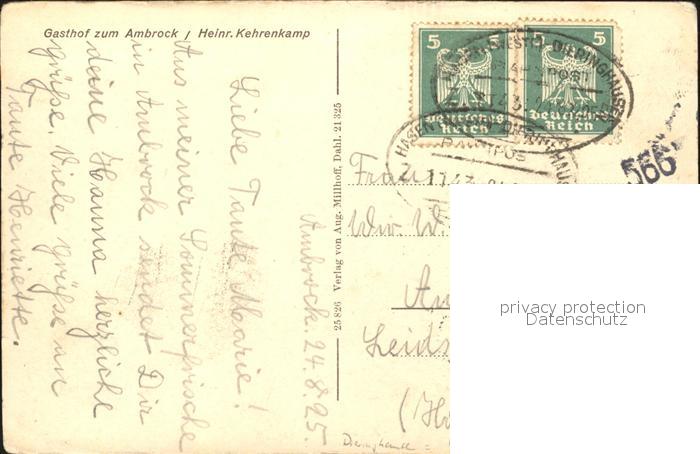 Gasthof zum Ambrock / Heinr. Kehrenkamp
Ambrock. 24.8.25.
Liebe Tante Marie!
Aus meiner Sommerfrische
in Ambrock sendet Dir
deine Hanna herzliche
Grüße. Viele Grüße an
Tante Henriette.
25826 Verlag von Aug. Millhoff, Dahl. 21325
5
5
Deutsches
Reich
5
5
Deutsches
Reich
HAGEN
BAHNPOST
Z.
566
Frau
Ww. W.
Leids
Dieringhausen
privacy protection
Datenschutz